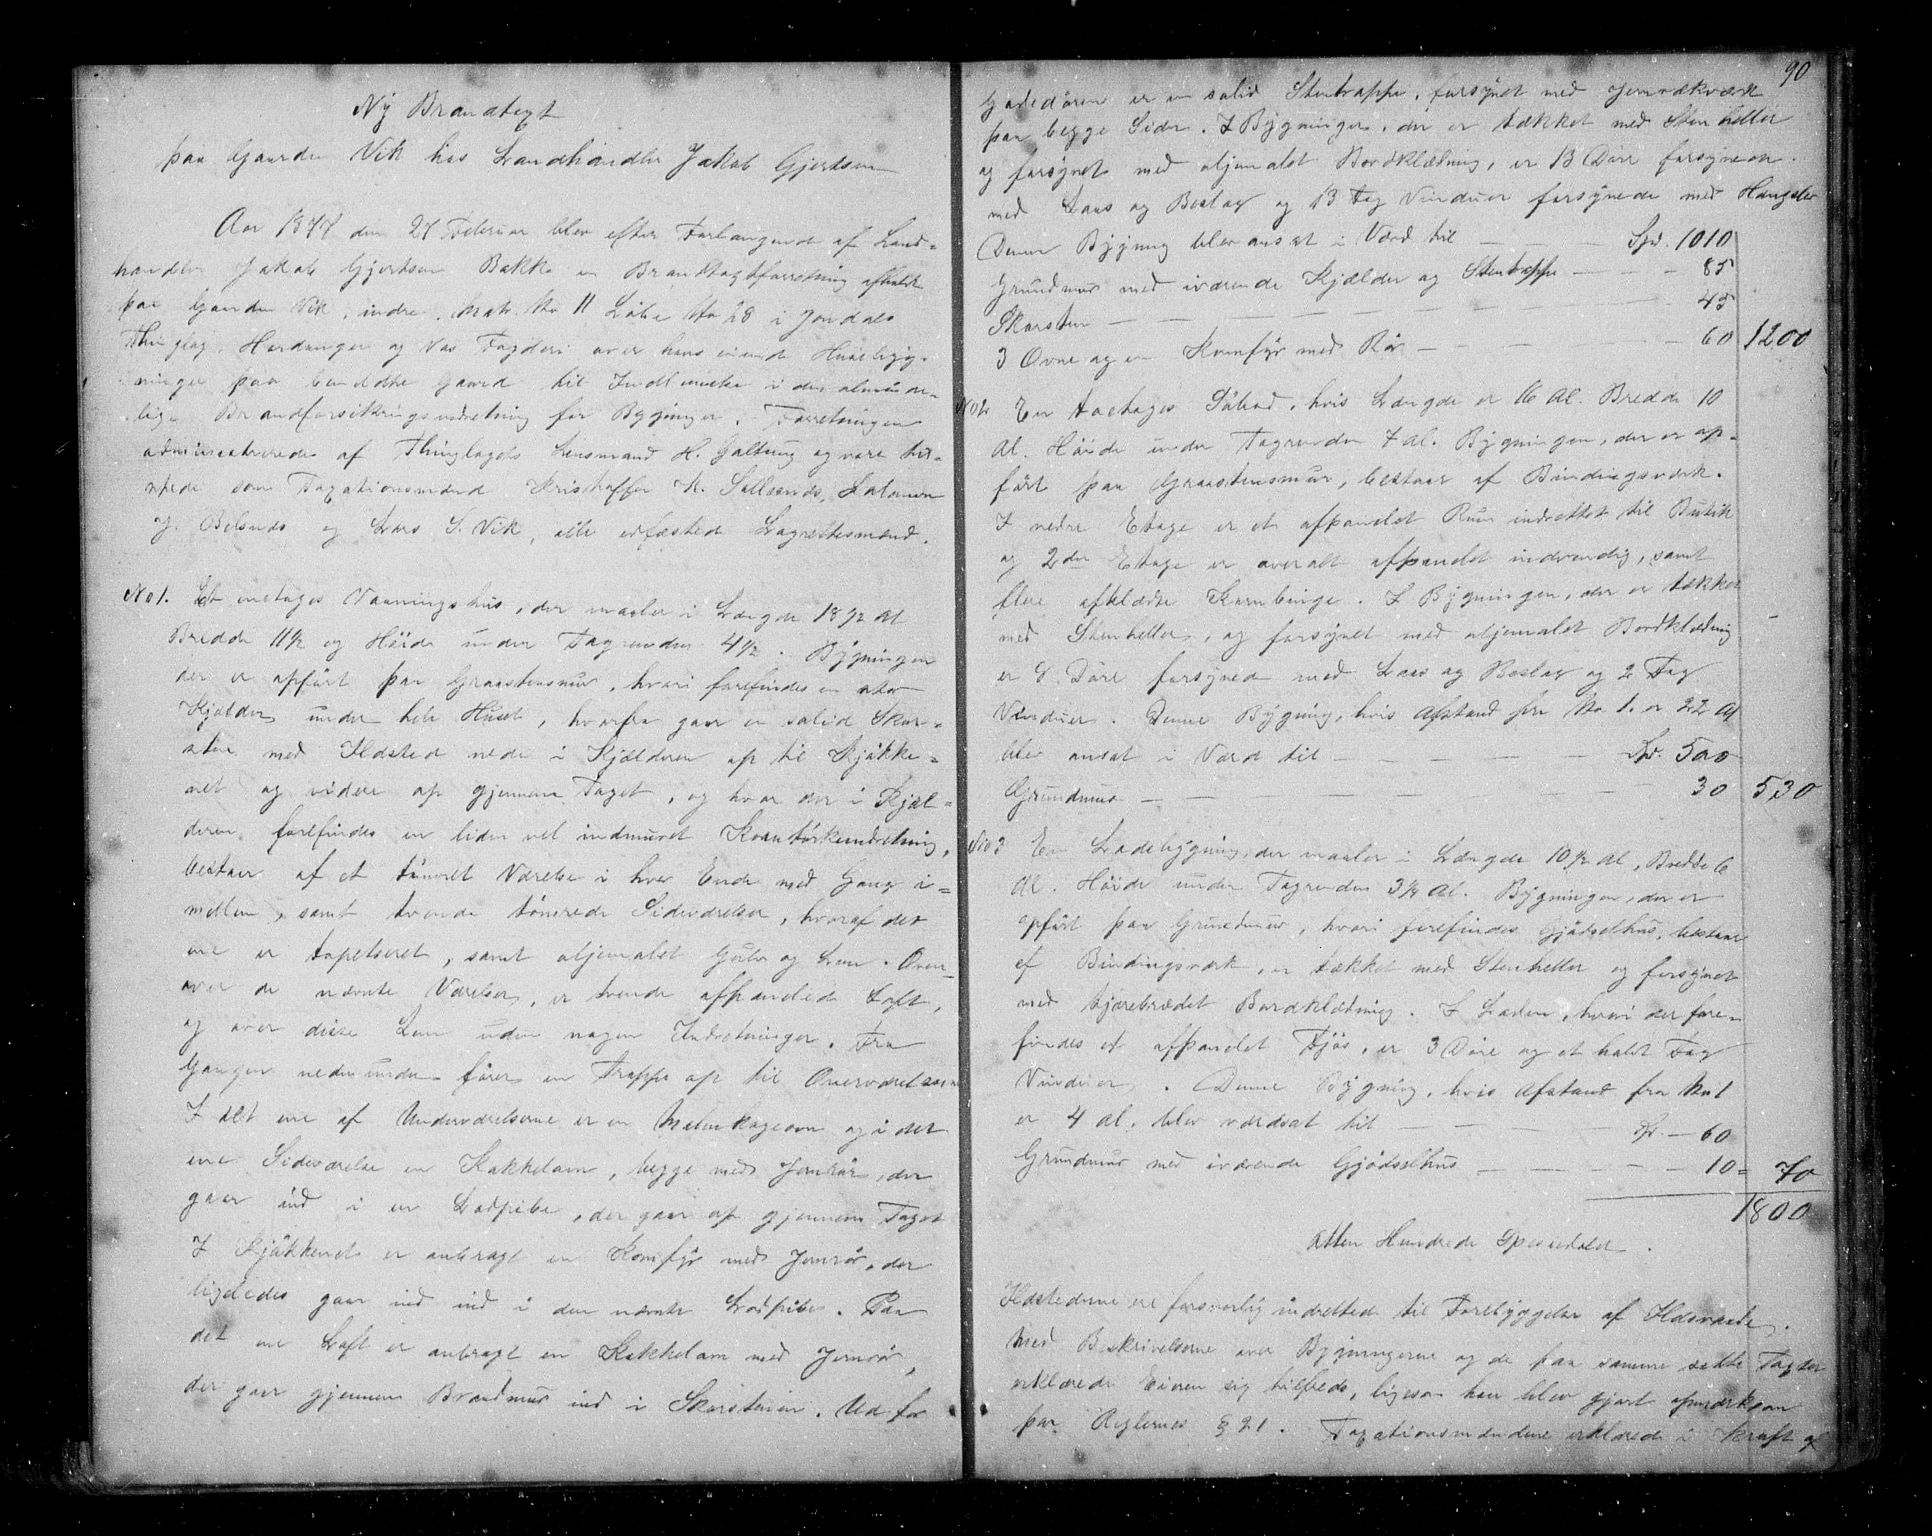 Ny Brandtaxt
paa Gaarden Vik hos Landhandler Jakob Gjertsen
Aar 1877 den 27 Februar blev efter Forlangende af Land-
handler Jakob Gjertsen Bakke en Brandtaxtforretning afholdt
paa Gaarden Vik, indre, Matr. No 11 Löbe No 28 i Jondals
Thinglag, Hardanger og Vos Fogderi over hans eiende Huusbyg-
ninger paa bemeldte Gaard til Indlemmelse i den alminde-
lige Brandforsikringsindretning for Bygninger. Forretningen
administreredes af Thinglagets Lensmand H. Galtung og vare til-
nævnte som Taxationsmænd Kristoffer K. Selsvold, Salamon
J. Belsnes og Lars S. Vik, alle edfæstede Lagrettesmænd.
No 1. Et enetages Vaaningshus, der maaler i Længde 18 1/2 Al
Bredde 11 1/2 og Höide under Tagrenden 4 1/2. Bygningen
der er opfört paa Graastensmur, hvori forefindes en stor
Kjælder under hele Huset, hvorfra gaar en solid Skor-
sten med Ildsted nede i Kjælderen op til Kjökke-
net og videre op gjennem Taget, og hvor der i Kjæl-
deren forefindes en liden vel indmuret Korntörkeindretning,
bestaar af et tömret Værelse i hver Ende med Gang i-
mellem, samt tvende tömrede Sideværelser, hvoraf det
ene er tapetseret, samt oljemalet Gulv og Lem. Oven-
over de nævnte Værelser, er tvende afpanelede Loft,
og over disse Lem uden nogen Indretninger. Fra
Gangen nedenunder förer en Trappe op til Overværelserne
I det ene af Underværelserne er en Malenkageovn og i det
ene Sideværelse en Kakkelovn, begge med Jernrör, der
gaar ind i en Lodpibe, der gaar op gjennem Taget
I Kjökkenet er anbragt en Komfyr med Jernrör, der
ligeledes gaar ind ind i den nævnte Lodpibe. Paa
det ene Loft er anbragt en Kakkelovn med Jernrör,
der gaar gjennem Brandmur ind i Skorstenen. Ud for
90
Gadedören er en solid Stentrappe, forsynet med Jernrækværk
paa begge Sider. I Bygningen, der er tækket med Stenheller
og forsynet med oljemalet Bordklædning, er 13 Döre forsynede
med Laas og Beslag og 13 Fag Vinduer forsynede med Hængsler
Denne Bygning blev ansat i Værd til — — Spd. 1010
Grundmur med iværende Kjælder og Stentrappe — — — 85
Skorsten — — — — — — 45
3 Ovne og en Komfyr med Rör — — — — — 60 1200
No 2 En toetages Söbod, hvis Længde er 16 Al. Bredde 10
Al. Höide under Tagrenden 7 Al. Bygningen, der er op-
fört paa Graastensmur, bestaar af Bindingsværk.
I nedre Etage er et afpanelet Rum indrettet til Butik
og 2den Etage er overalt afpanelet indvendig, samt
flere afklædte Kornbinge. I Bygningen, der er tækket
med Stenheller, og forsynet med oljemalet Bordklædning
er 8 Döre forsynede med Laas og Beslag og 2 Fag
Vinduer. Denne Bygning, hvis Afstand fra No 1. er 22 Al
blev ansat i Værd til — — — — — Spd. 500
Grundmur — — — — — — — 30 530
No 3 En Ladebygning, der maaler i Længde 10 1/2 Al, Bredde 6
Al. Höide under Tagrenden 3 1/2 Al. Bygningen, der er
opfört paa Grundmur, hvori forefindes Gjödselhus, bestaar
af Bindingsværk, er tækket med Stenheller og forsynet
med tjærebrædet Bordklædning. I Laden, hvori der fore-
findes et afpanelet Fjös, er 3 Döre og et halvt Fag
Vinduer. Denne Bygning, hvis Afstand fra No 1
er 4 Al. blev værdsat til — — — — Spd. — 60
Grundmur med iværende Gjödselhus — — — — 10 = 70
1800
Atten Hundrede Speciedaler.
Ildstederne ere forsvarlig indrettede til Forebyggelse af Ildsvaade.
Med Beskrivelserne over Bygningerne og de paa samme satte Taxter
erklærede Eieren sig tilfreds, ligesom han blev gjort opmærksom
paa Reglernes § 21. Taxationsmændene erklærede i Kraft af